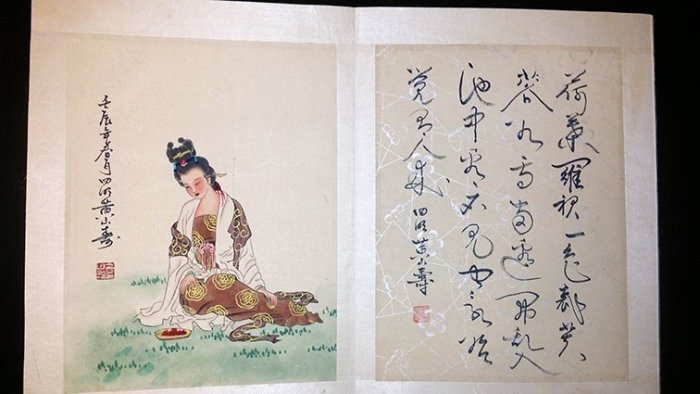 荷葉羅裙一色裁芙
蓉向臉兩邊開亂入
池中看不見聞歌始
覺有人來 四明黄山壽
壬辰年春月四明黄山壽